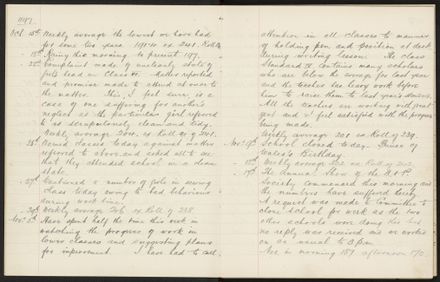 1897.
Oct. 15th Weekly average the lowest we have had
for some two years 190.11 ex 241. Roll
18th Going this morning to present 197.
22nd Complaint made of uncleanly state of
girls head in Class III. Matter reported
and promise made to attend above to
the matter. This, I feel sure, is a
case of one suffering for another's
neglect as the particular girl referred
to is scrupulously clean and tidy.
Weekly average 204. ex Roll of 241.
25th Warned classes today against matter
referred to above and asked all to see
that they attended school in a clean
state.
27th Cautioned a number of girls in sewing
class today owing to bad behaviour
during work time.
29th Weekly average 206 ex Roll of 238
Nov. 5th Have spent half the time this week in
watching the progress of work in
lower classes and suggesting plans
for improvement. I have had to call
attention in all classes to manner
of holding pen and position at desk
during writing lesson. The class
Standard IV contains many scholars
who are below the average for last year
and the teacher has heavy work before
him to raise them to last year's standard.
All the teachers are working with great
zest and I feel satisfied with the progress
being made.
Weekly average 202 ex Roll of 239.
Nov. 9th School closed today. Prince of
Wales's Birthday.
17th The Annual Show of the A & P
Society commenced this morning and
the numbers have suffered
A request was made to Committee to
close school for week as the two
other schools were doing this but
no reply was received and we worked
on as usual to 3 p.m.
No. in morning 187 afternoon 170.